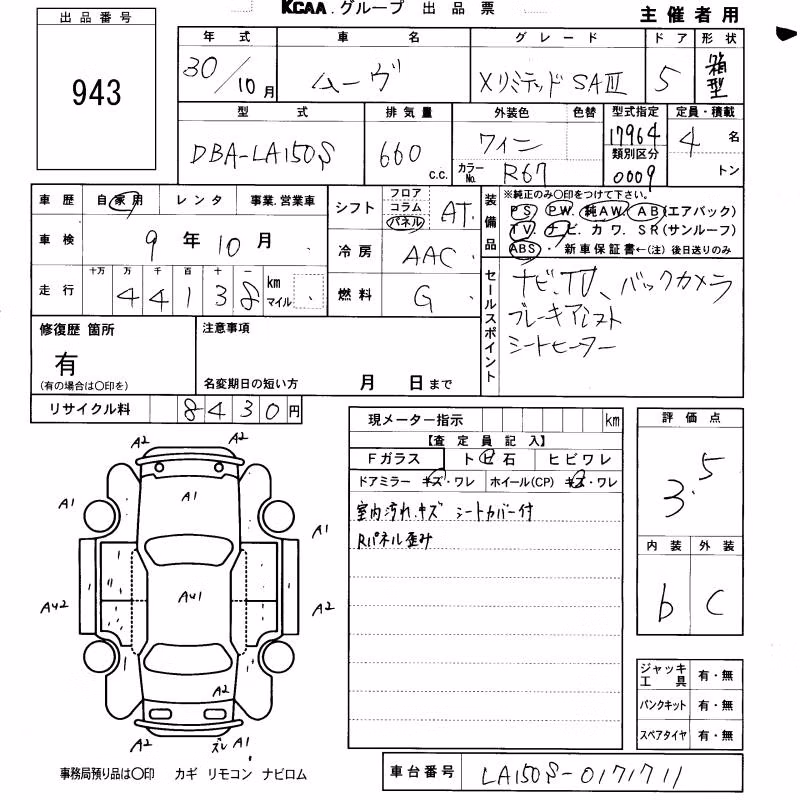 KCAA.グループ 出品票
主催者用
出品番号
943
年式 車名 グレード ドア 形状
30/10月 ムーヴ Xリミテッド SAⅢ 5 箱型
型式 排気量 外装色 色替 型式指定 定員・積載
DBA-LA150S 660 c.c. ワイン 17964 4 名
類別区分
カラーNo. R67 0009 トン
車歴 自家用 レンタ 事業.営業車
車検 9年10月
走行 十万 万 千 百 十 一
44138 km マイル
シフト フロア コラム パネル AT
冷房 AAC
燃料 G
装備品
※純正のみ○印をつけて下さい。
PS PW. 純AW. AB(エアバック)
TV. ナビ. カワ. SR(サンルーフ)
ABS. 新車保証書←(注) 後日送りのみ
セールスポイント
ナビ、TV、バックカメラ
ブレーキアシスト
シートヒーター
修復歴 箇所
有
(有の場合は○印を)
注意事項
名変期日の短い方 月 日まで
リサイクル料 8430円
現メーター指示 km
【査定員記入】
Fガラス トビ石 ヒビワレ
ドアミラー キズ・ワレ ホイール(CP) キズ・ワレ
室内汚れ、キズ シートカバー付
Rパネル歪み
評価点
3.5
内装 外装
b C
A2 A2
A1 A1
A1
AU2 AU1 A2
A2
A2 ズレ A1
ジャッキ工具 有・無
パンクキット 有・無
スペアタイヤ 有・無
事務局預り品は○印 カギ リモコン ナビロム
車台番号 LA150S-0171711